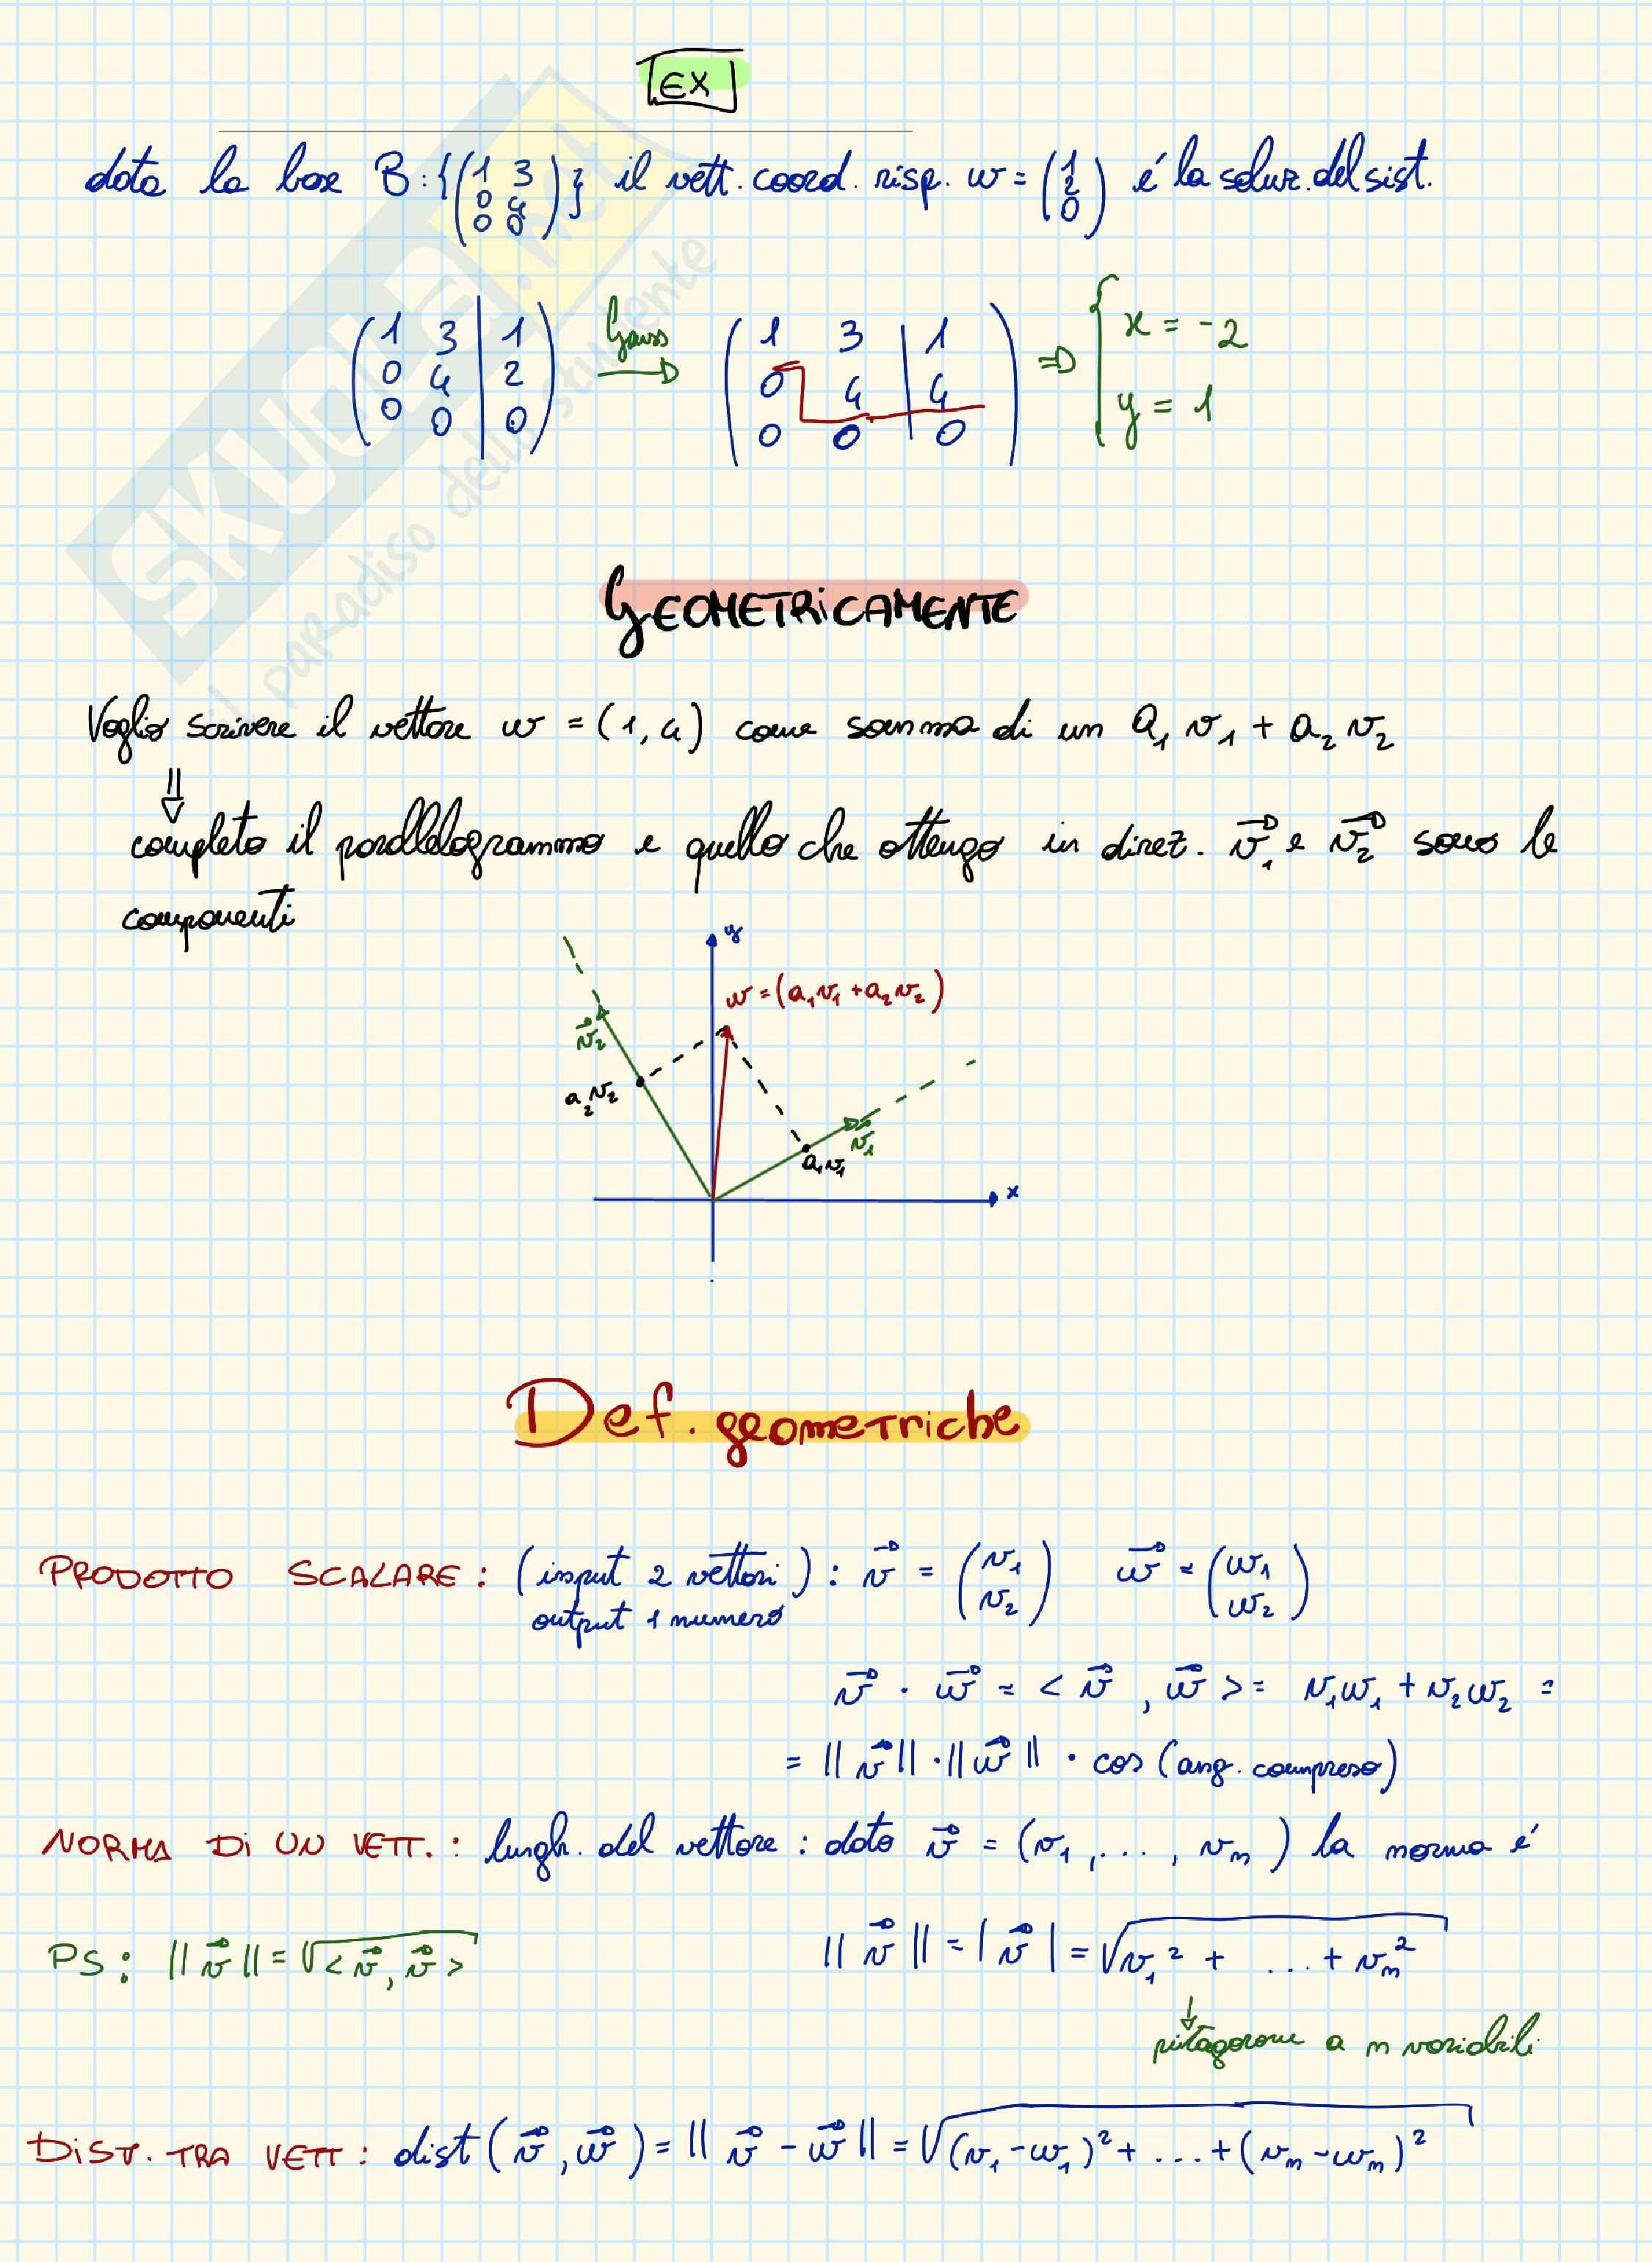 EX
data la base B:{(1 3 / 0 4 / 0 0)} il vett. coord. risp. w = (1 / 2 / 0) é la soluz. del sist.
(1 3 | 1 / 0 4 | 2 / 0 0 | 0) Gauss → (1 3 | 1 / 0 4 | 4 / 0 0 | 0) ⇒ { x = -2
y = 1
GEOMETRiCAMENTE
Voglio scrivere il vettore w = (1, 4) come somma di un a₁ v₁ + a₂ v₂
⇓
completo il parallelogrammo e quello che ottengo in direz. v⃗₁ e v⃗₂ sono le
componenti
y
w = (a₁v₁ + a₂v₂)
v⃗₂
a₂v₂
v⃗₁
a₁v₁
x
Def. geometriche
PRODOTTO SCALARE : (input 2 vettori / output 1 numero) : v⃗ = (v₁ / v₂) w⃗ = (w₁ / w₂)
v⃗ · w⃗ = < v⃗ , w⃗ > = v₁w₁ + v₂w₂ =
= || v⃗ || · || w⃗ || · cos (ang. compreso)
NORMA Di UN VETT. : lungh. del vettore : dato v⃗ = (v₁ , ... , vₙ) la norma é
PS : || v⃗ || = √< v⃗ , v⃗ > || v⃗ || = | v⃗ | = √v₁² + ... + vₙ²
↓
pitagorone a n variabili
DiST. TRA VETT : dist ( v⃗ , w⃗ ) = || v⃗ - w⃗ || = √(v₁ - w₁)² + ... + (vₙ - wₙ)²
SKUOLA.net
il paradiso dello studente